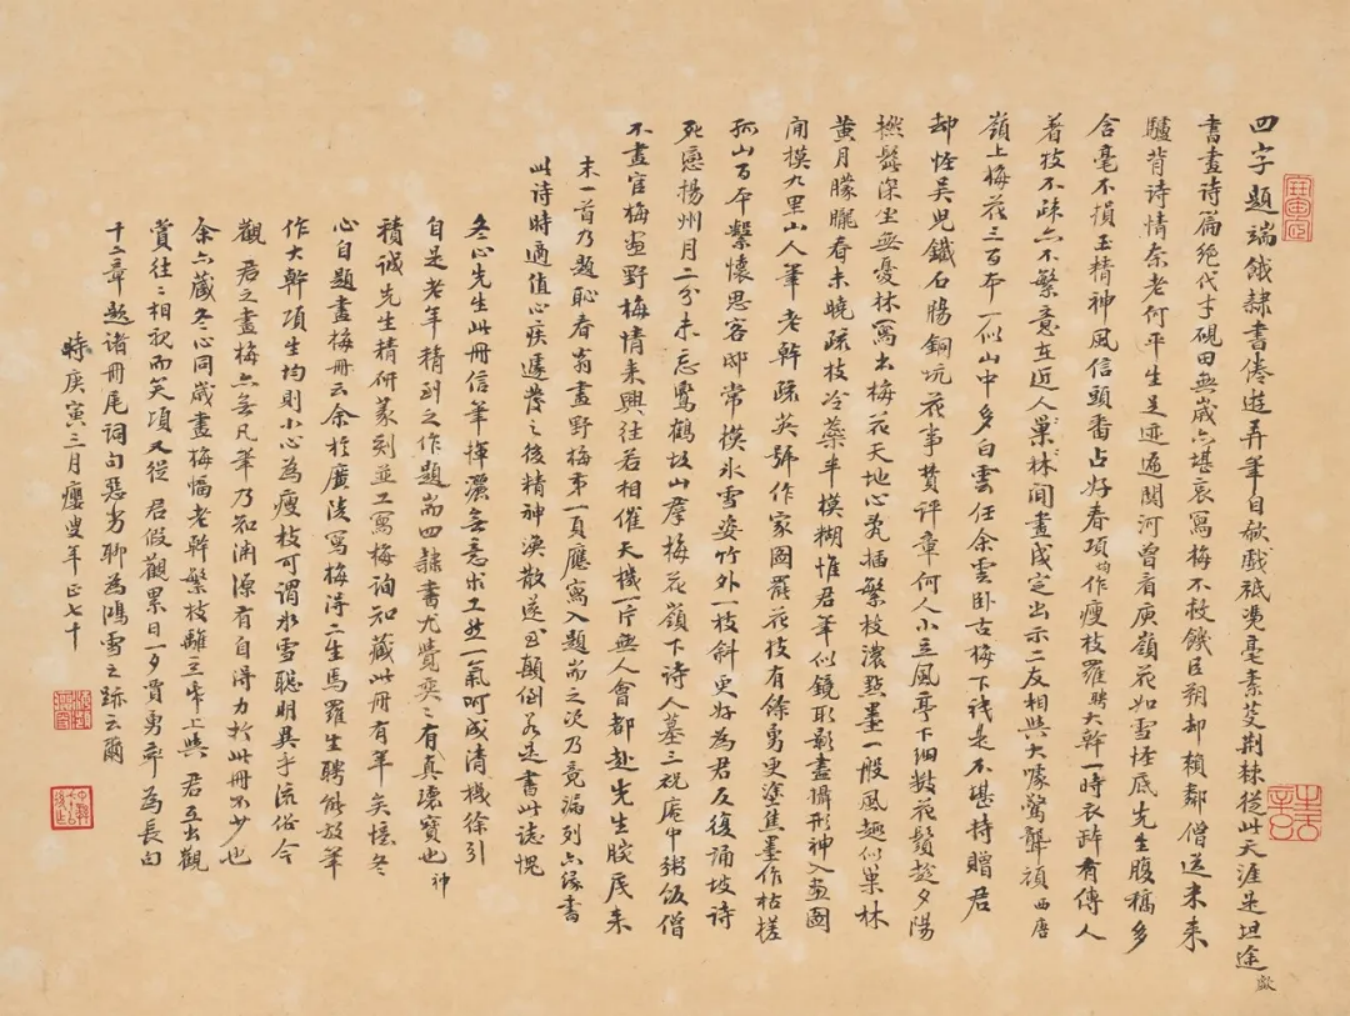 四字題端餓隸書倦遊弄筆自欷戲祗憑毫素芟荆棘從此天涯是坦途歔
書畫詩篇絕代才硯田無歲亦堪哀寫梅不救饑臣朔却賴鄰僧送米來
驢背詩情奈老何平生足迹遍関河曾看庾嶺花如雪怪底先生腹稿多
含毫不損玉精神風信頭番占好春項均作瘦枝羅聘大幹一時衣鉢有傳人
着枝不疎亦不繁意在近人巢林間畫成定出示二友相與大噱驚聾頑西唐
嶺上梅花三百本一似山中多白雲任余雲卧古梅下祗是不堪持贈君
却怪吳兒鐵石腸銅坑花事費評章何人小立風亭下細數花鬚趁夕陽
撚髭深坐無憂林寫出梅花天地心亂插繁枝濃點墨一般風趣似巢林
黄月朦朧春未曉疏枝冷蘂半模糊惟君筆似鏡取影盡攝形神入畫圖
閒模九里山人筆老幹疏英號作家圖罷花枝有餘勇更塗焦墨作枯槎
孤山百本繫懷思客邸常模氷雪姿竹外一枝斜更好為君反復誦坡詩
死戀揚州月二分未忘鴛鶴故山羣梅花嶺下詩人墓三祝庵中粥飯僧
不畫官梅畫野梅情来興往若相催天機一片無人會都赴先生腕底来
末一首乃題恥春翁畫野梅弟一頁應寫入題耑之次乃竟漏列亦緣書
此诗時適值心疾遽發之後精神渙散遂致顛倒若是書此誌愧
冬心先生此冊信筆揮灑無意求工然一氣呵成清機徐引
自是老年精到之作題耑四隸書尤覺奕ミ有真瓌寶也神
積誠先生精研篆刻並工寫梅詢知藏此冊有年矣憶冬
心自題畫梅冊云余於廣陵寫梅得二生焉羅生聘能放筆
作大幹項生均則小心為瘦枝可謂氷雪聰明異乎流俗今
觀君之畫梅亦無凡筆乃知淵源有自得力於此冊不少也
余亦藏冬心同歲畫梅幅老幹繁枝離立紙上與君互出觀
賞往ミ相視而笑項又從君假觀累日一夕賈勇率為長句
十二章題諸冊尾詞句惡劣聊為鴻雪之跡云爾
時庚寅三月癭叟年正七十